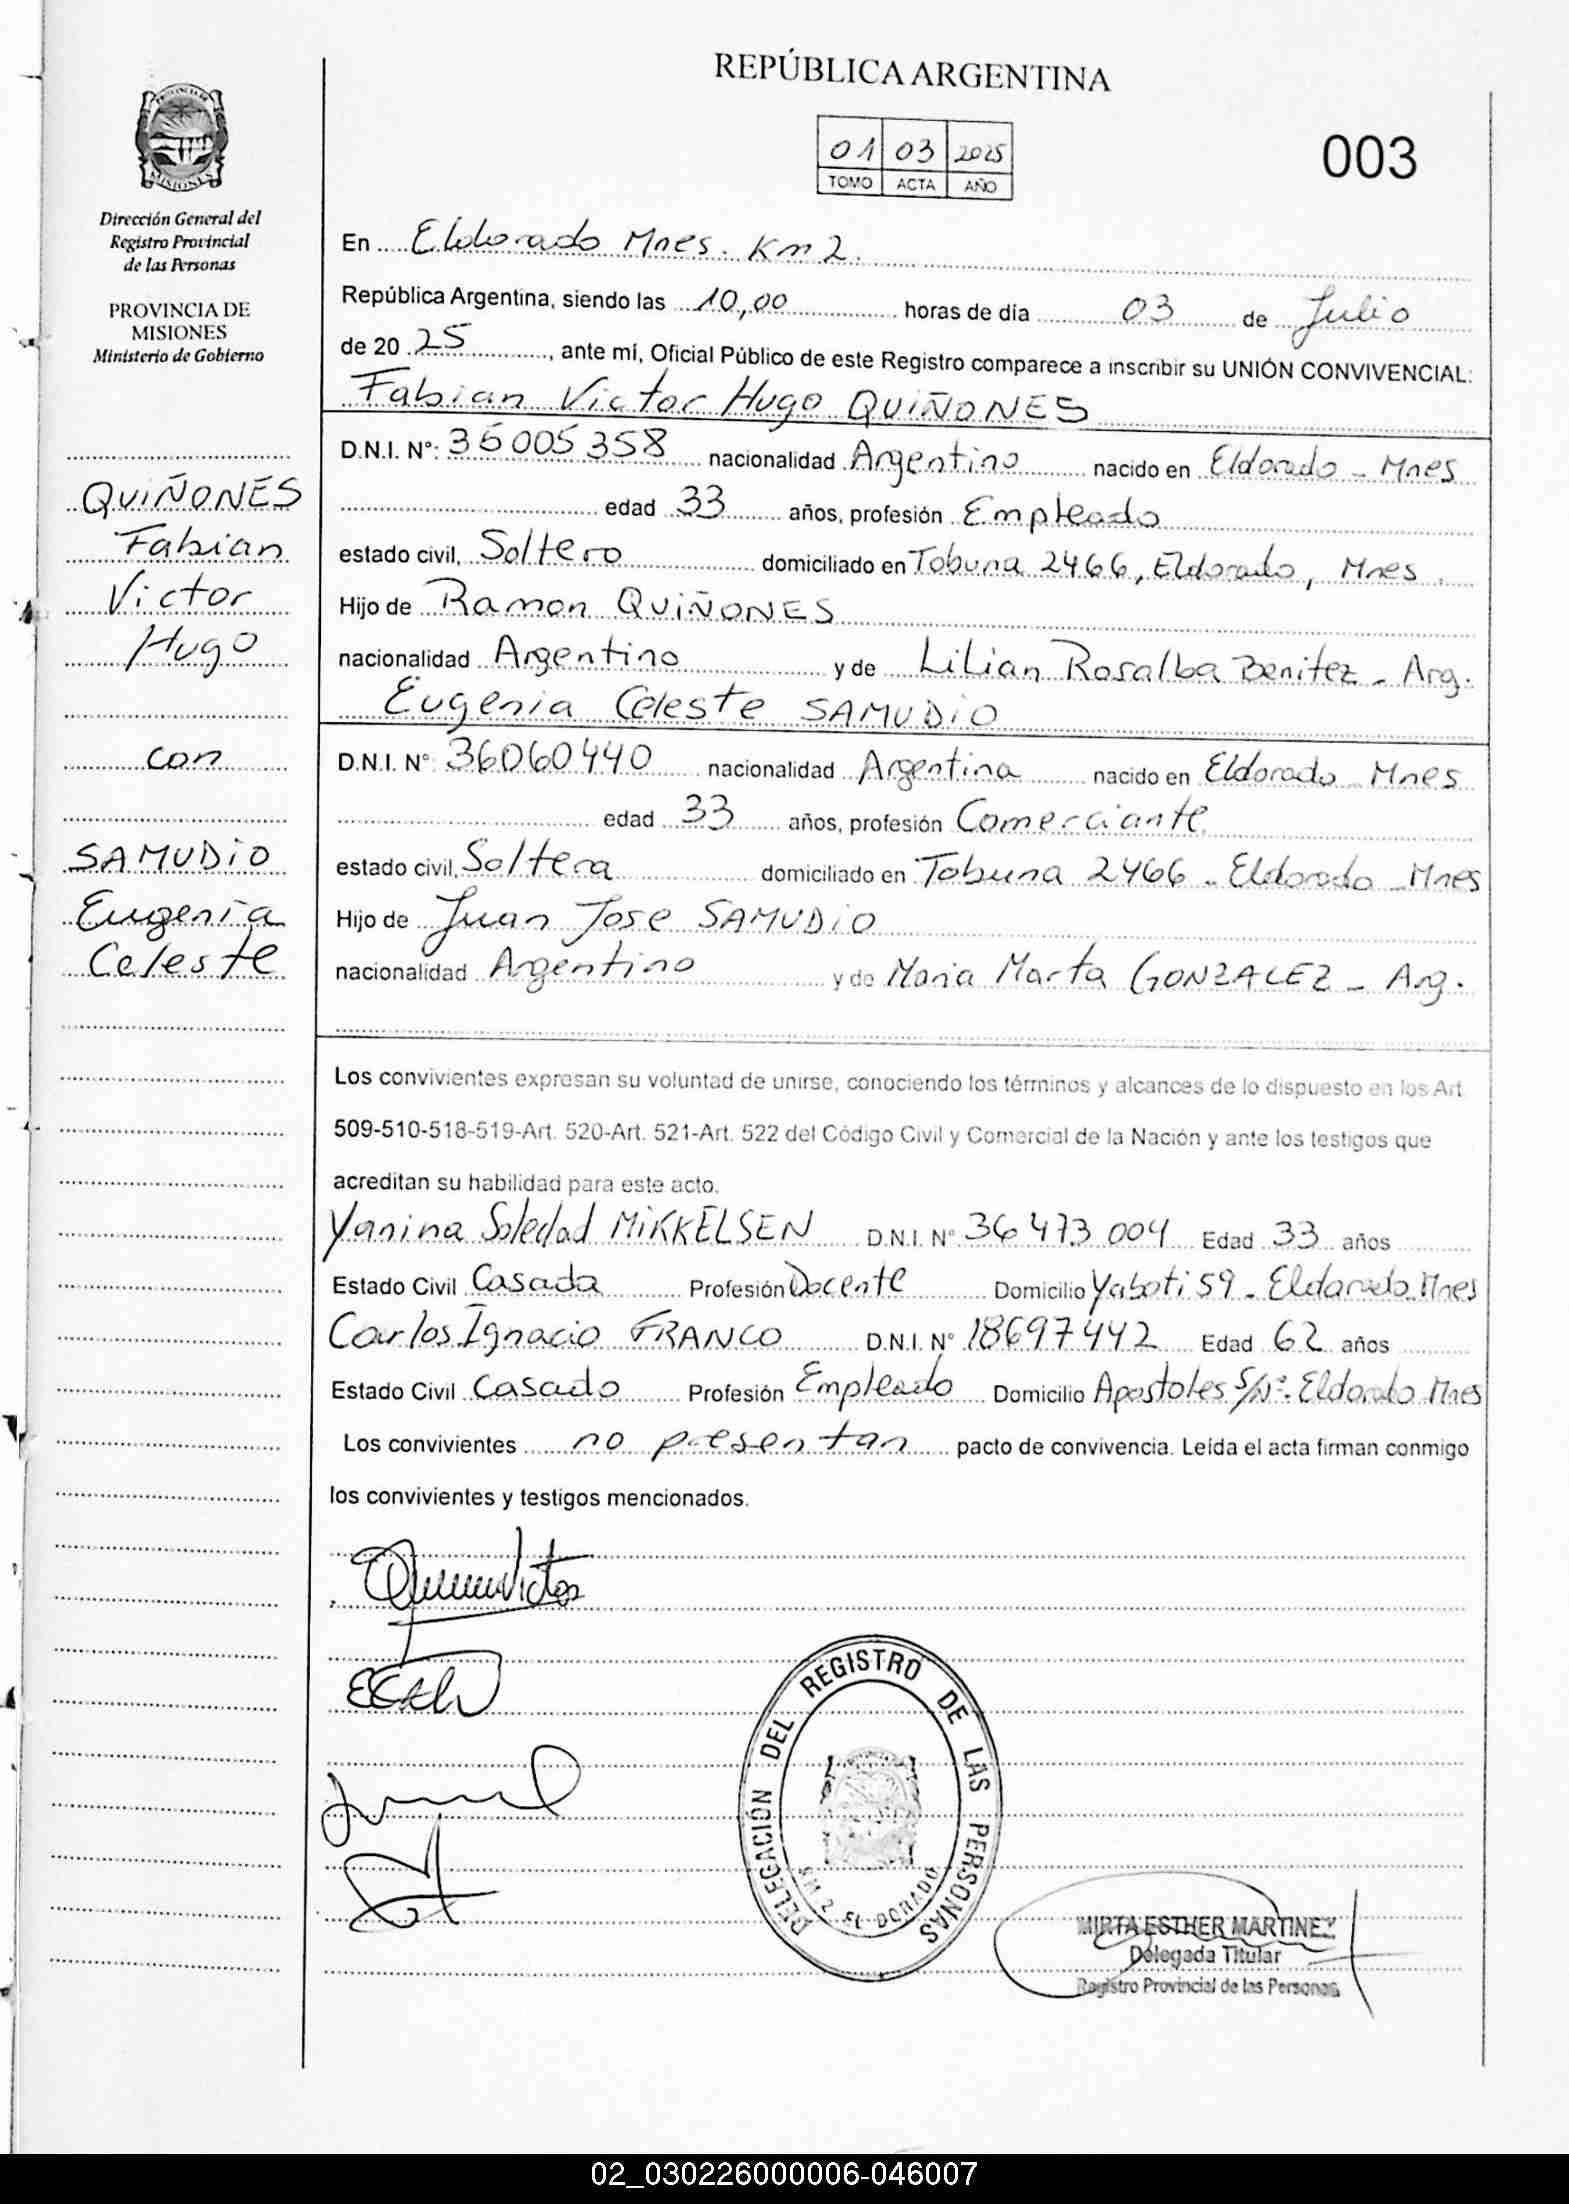 REPÚBLICA ARGENTINA
01 03 2025
TOMO ACTA AÑO
003
PROVINCIA DE
MISIONES
Dirección General del
Registro Provincial
de las Personas
PROVINCIA DE
MISIONES
Ministerio de Gobierno
QUIÑONES
Fabian
Victor
Hugo
con
SAMUDIO
Eugenia
Celeste
En Eldorado Mnes. Km 2.
República Argentina, siendo las 10,00 horas de día 03 de Julio
de 20 25, ante mí, Oficial Público de este Registro comparece a inscribir su UNIÓN CONVIVENCIAL:
Fabian Victor Hugo QUIÑONES
D.N.I. Nº: 36005358 nacionalidad Argentino nacido en Eldorado - Mnes
edad 33 años, profesión Empleado
estado civil, Soltero domiciliado en Tobuna 2466, Eldorado, Mnes.
Hijo de Ramon QUIÑONES
nacionalidad Argentino y de Lilian Rosalba Benitez - Arg.
Eugenia Celeste SAMUDIO
D.N.I. Nº 36060440 nacionalidad Argentina nacido en Eldorado Mnes
edad 33 años, profesión Comerciante
estado civil, Soltera domiciliado en Tobuna 2466 - Eldorado - Mnes
Hijo de Juan Jose SAMUDIO
nacionalidad Argentino y de Maria Marta GONZALEZ - Arg.
Los convivientes expresan su voluntad de unirse, conociendo los términos y alcances de lo dispuesto en los Art.
509-510-518-519-Art. 520-Art. 521-Art. 522 del Código Civil y Comercial de la Nación y ante los testigos que
acreditan su habilidad para este acto.
Yanina Soledad MIKKELSEN D.N.I. Nº 36 473 004 Edad 33 años
Estado Civil Casada Profesión Docente Domicilio Yaboti 59 - Eldorado Mnes
Carlos Ignacio FRANCO D.N.I. Nº 18697442 Edad 62 años
Estado Civil Casado Profesión Empleado Domicilio Apostoles S/Nº. Eldorado Mnes
Los convivientes no presentan pacto de convivencia. Leída el acta firman conmigo
los convivientes y testigos mencionados.
DELEGACIÓN DEL REGISTRO DE LAS PERSONAS
KM 2 EL DORADO
MIRTA ESTHER MARTINEZ
Delegada Titular
Registro Provincial de las Personas
02_030226000006-046007